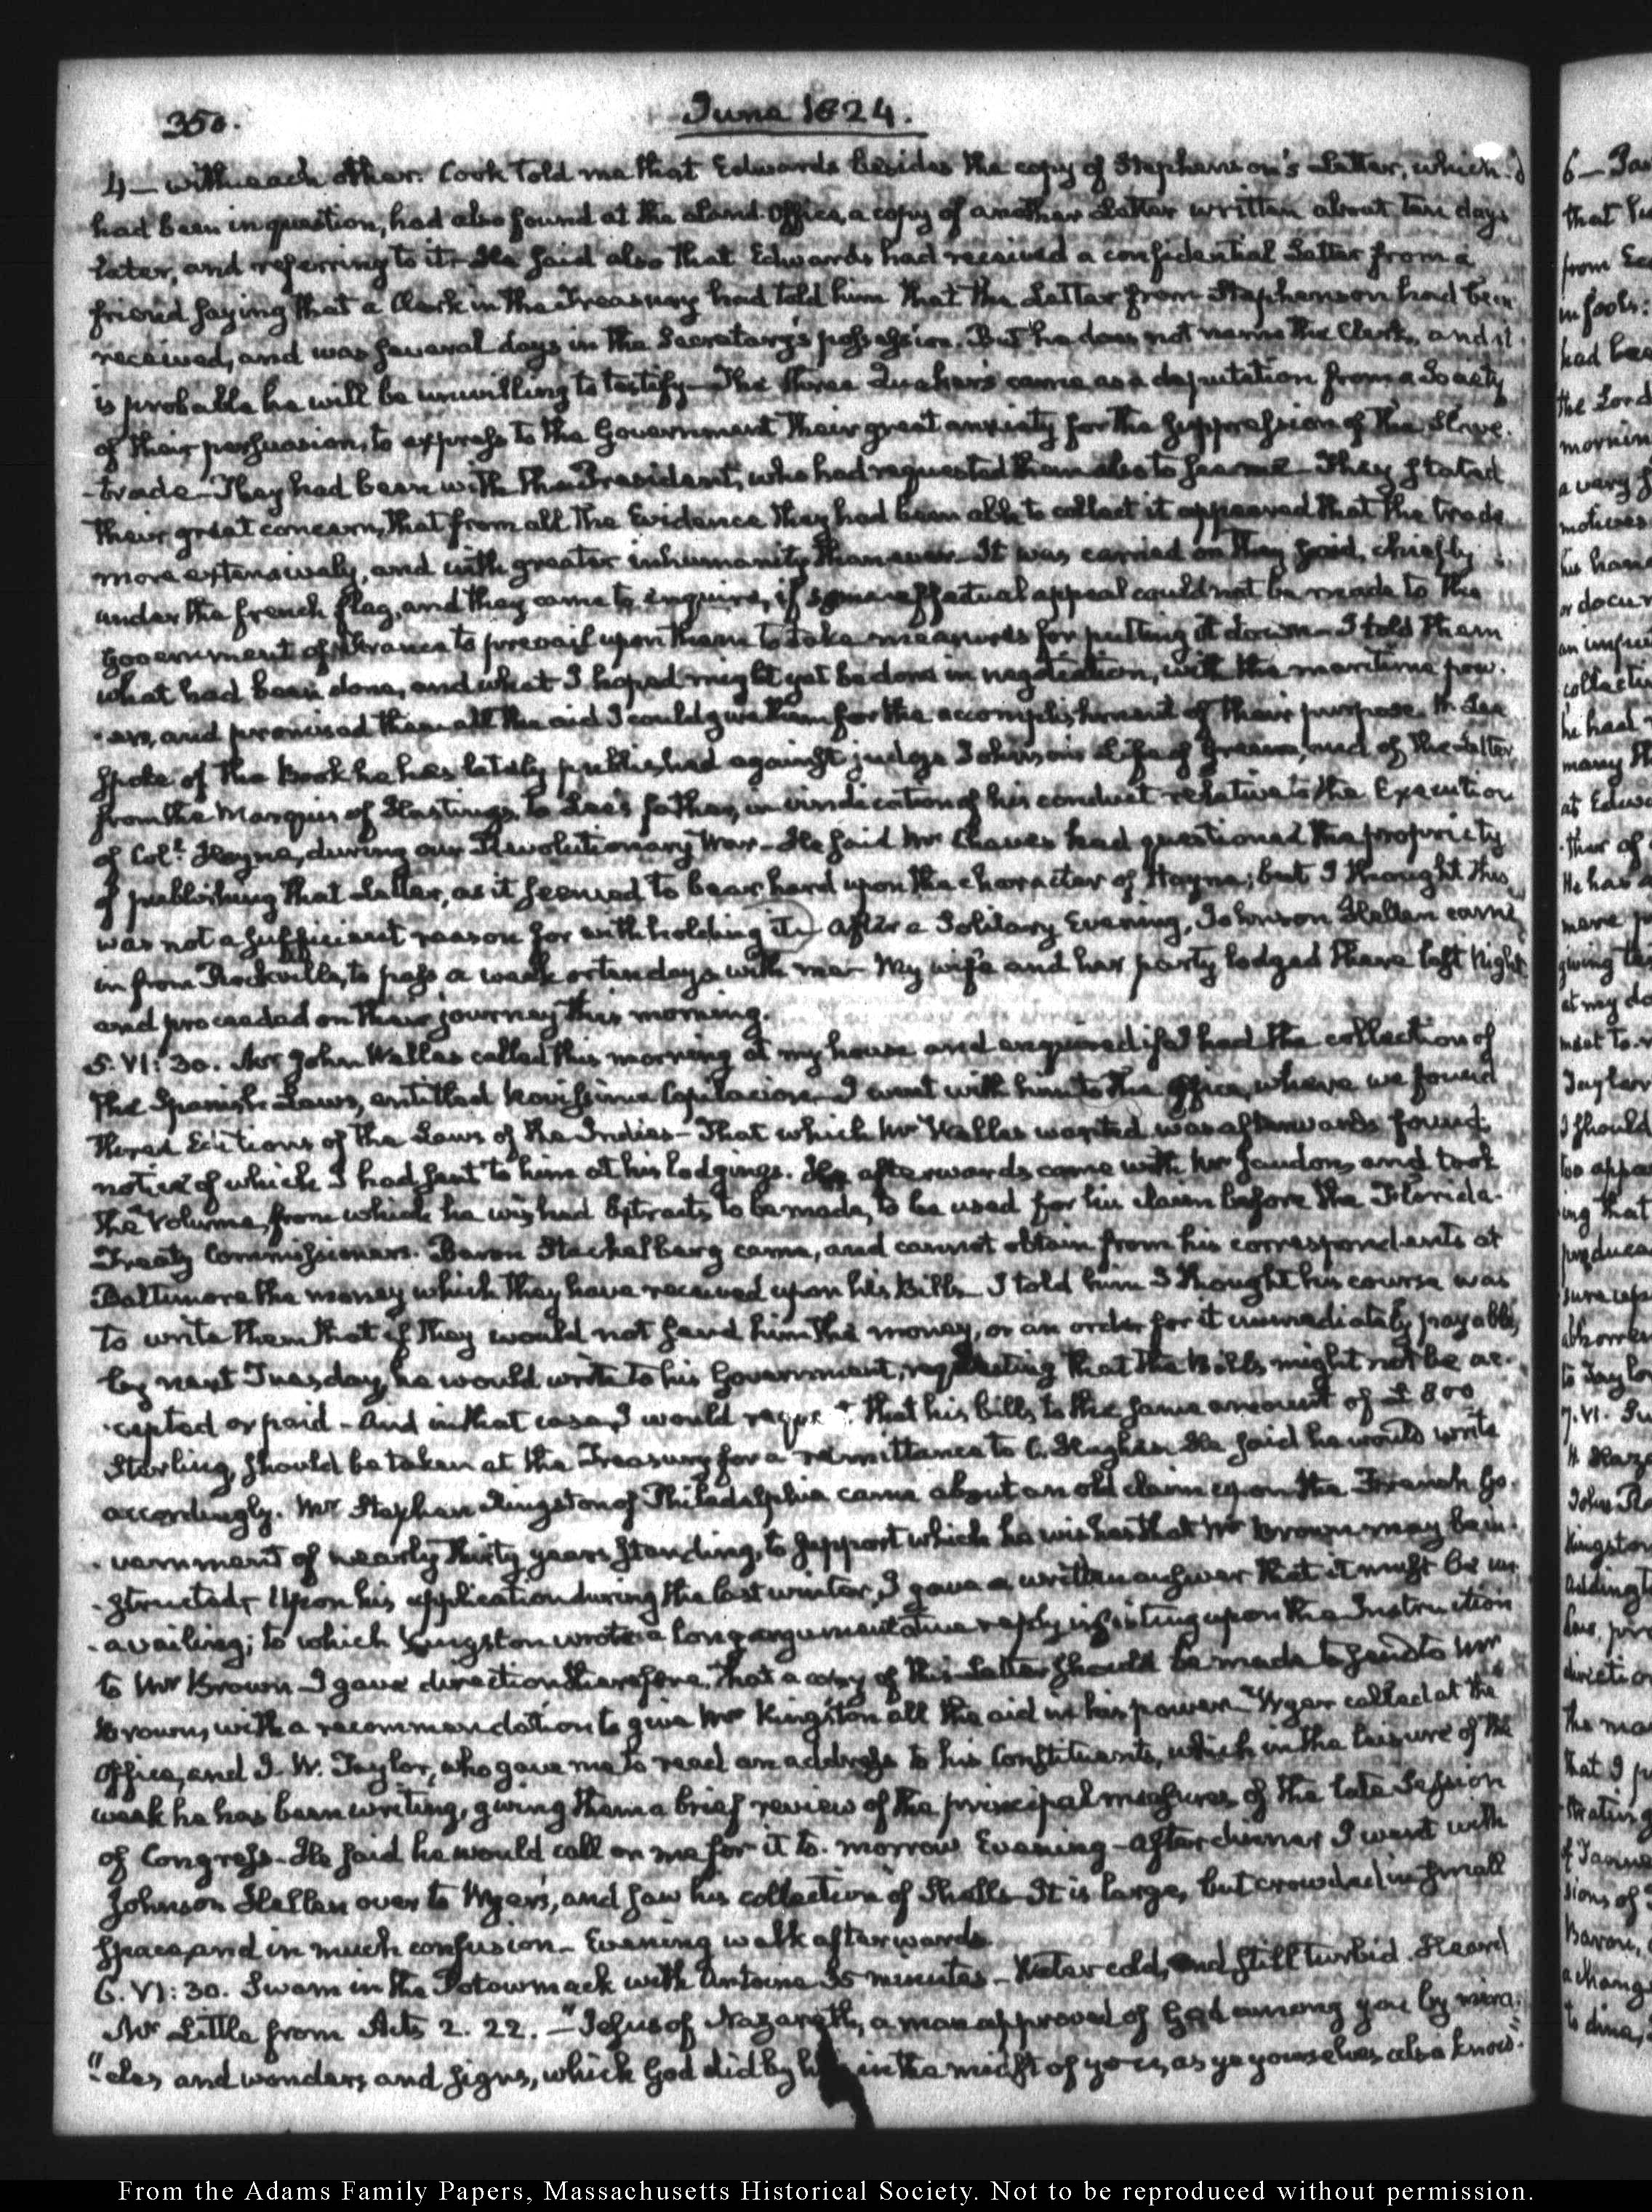 350.
June 1824.
4 — with each other. Cook told me that Edwards besides the copy of Stephenson's Letter, which
had been in question, had also found at the Land-Office, a copy of another Letter written about ten days
later, and referring to it — He said also that Edwards had received a confidential Letter from a
friend saying that a Clerk in the Treasury had told him that the Letter from Stephenson had been
received, and was several days in the Secretary's possession. But he does not name the Clerk, and it
is probable he will be unwilling to testify — The three Quakers came as a deputation from a Society
of their persuasion, to express to the Government their great anxiety for the suppression of the Slave-
-trade — They had been with the President, who had requested them also to see me — They stated
their great concern, that from all the Evidence they had been able to collect it appeared that the trade
more extensively, and with greater inhumanity than ever — It was carried on they said, chiefly
under the french flag, and they came to enquire, if some effectual appeal could not be made to the
Government of France to prevail upon them to take measures for putting it down — I told them
what had been done, and what I hoped might yet be done in negotiation, with the maritime pow-
-ers, and promised them all the aid I could give them for the accomplishment of their purpose. Mr Lee
spoke of the Book he has lately published against judge Johnson's Life of Greene, and of the Letter
from the Marquis of Hastings, to Lee's father, in vindication of his conduct relative to the Execution
of Coll. Hayne, during our Revolutionary War — He said Mr Cheves had questioned the propriety
of publishing that Letter, as it seemed to bear hard upon the character of Hayne; but I thought this
was not a sufficient reason for withholding it — After a Solitary Evening, Johnson Hellen came
in from Rockville, to pass a week or ten days with me — My wife and her party lodged there last Night
and proceeded on their journey this morning.
5. VI: 30. Mr John Welles called this morning at my house and enquired if I had the collection of
the Spanish Laws, entitled I went with him to the Office, where we found
three Editions of the Laws of the Indies — That which Mr Welles wanted was afterwards found,
notice of which I had sent to him at his lodgings. He afterwards came with Mr Jaudon, and took
the Volume, from which he wished Extracts to be made, to be used for his claim before the Florida-
Treaty Commissioners. Baron Stackelberg came, and cannot obtain from his correspondents at
Baltimore the money which they have received upon his Bills — I told him I thought his course was
to write them that if they would not send him the money, or an order for it immediately payable,
by next Tuesday, he would write to his Government, requesting that the Bills might not be ac-
-cepted or paid — And in that case, I would request that his bills to the same amount of £ 800
Sterling, should be taken at the Treasury for a remittance to C. Hughes. He said he would write
accordingly. Mr Stephen Kingston of Philadelphia came about an old claim upon the French Go-
-vernment of nearly thirty years standing, to support which he wishes that Mr Brown may be in-
-structed. Upon his application during the last winter, I gave a written answer that it must be un-
-availing; to which Kingston wrote a long argumentative reply insisting upon the Instruction
to Mr Brown — I gave direction therefore, that a copy of this Letter should be made to send to Mr
Brown, with a recommendation to give Mr Kingston all the aid in his power. Wyer called at the
Office, and J. W. Taylor, who gave me to read an address to his Constituents, which in the leisure of the
week he has been writing, giving them a brief review of the principal measures of the late Session
of Congress — He said he would call on me for it to-morrow Evening — After dinner I went with
Johnson Hellen over to Wyer's, and saw his collection of Shells — It is large, but crowded in small
space, and in much confusion — Evening walk afterwards.
6. VI: 30. Swam in the Potowmack with Antoine 35 minutes — Water cold, and still turbid. Heard
Mr Little from Acts 2. 22. — "Jesus of Nazareth, a man approved of God among you by mira-
"-cles and wonders and signs, which God did by in the midst of you, as ye yourselves also know."
From the Adams Family Papers, Massachusetts Historical Society. Not to be reproduced without permission.